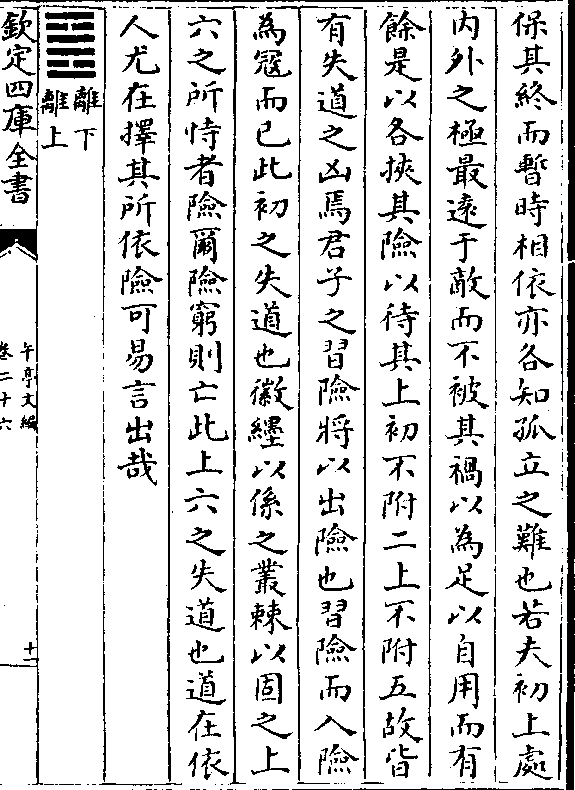 保其終而暫時相依亦各知孤立之難也若夫初上處
内外之極最逺于敵而不被其禍以為足以自用而有
餘是以各挾其險以待其上初不附二上不附五故皆
有失道之凶焉君子之習險將以出險也習險而入險
為寇而已此初之失道也徽纆以係之叢棘以固之上
六之所恃者險爾險窮則亡此上六之失道也道在依
人尤在擇其所依險可易言出哉
䷝離下
離上
欽定四庫全書
午亭文編
卷二十六
十一